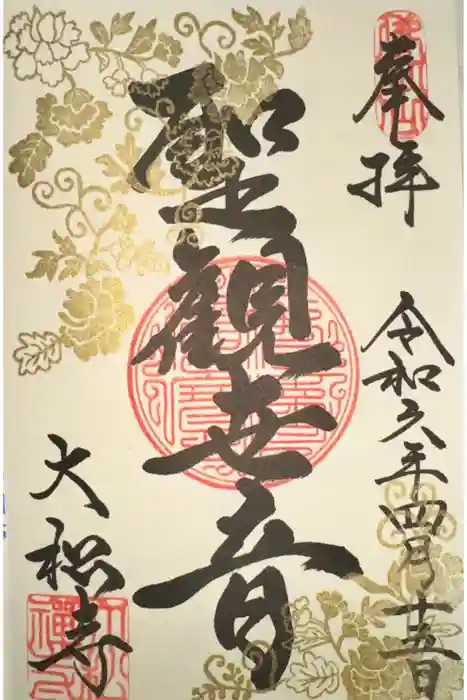 奉拝
令和六年四月十五日
聖観世音
大松寺